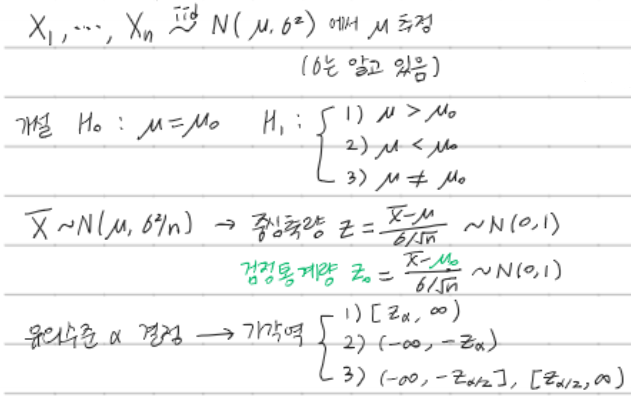 X₁, ⋯, Xₙ iid~ N(μ, σ²) 에서 μ 추정
(σ는 알고 있음)
가설 H₀ : μ = μ₀ H₁ : { 1) μ > μ₀
2) μ < μ₀
3) μ ≠ μ₀
X̄ ~ N(μ, σ²/n) → 중심축량 Z = (X̄-μ)/(σ/√n) ~ N(0,1)
검정통계량 Z₀ = (X̄-μ₀)/(σ/√n) ~ N(0,1)
유의수준 α 결정 → 기각역 { 1) [z_α, ∞)
2) (-∞, -z_α)
3) (-∞, -z_α/2], [z_α/2, ∞)